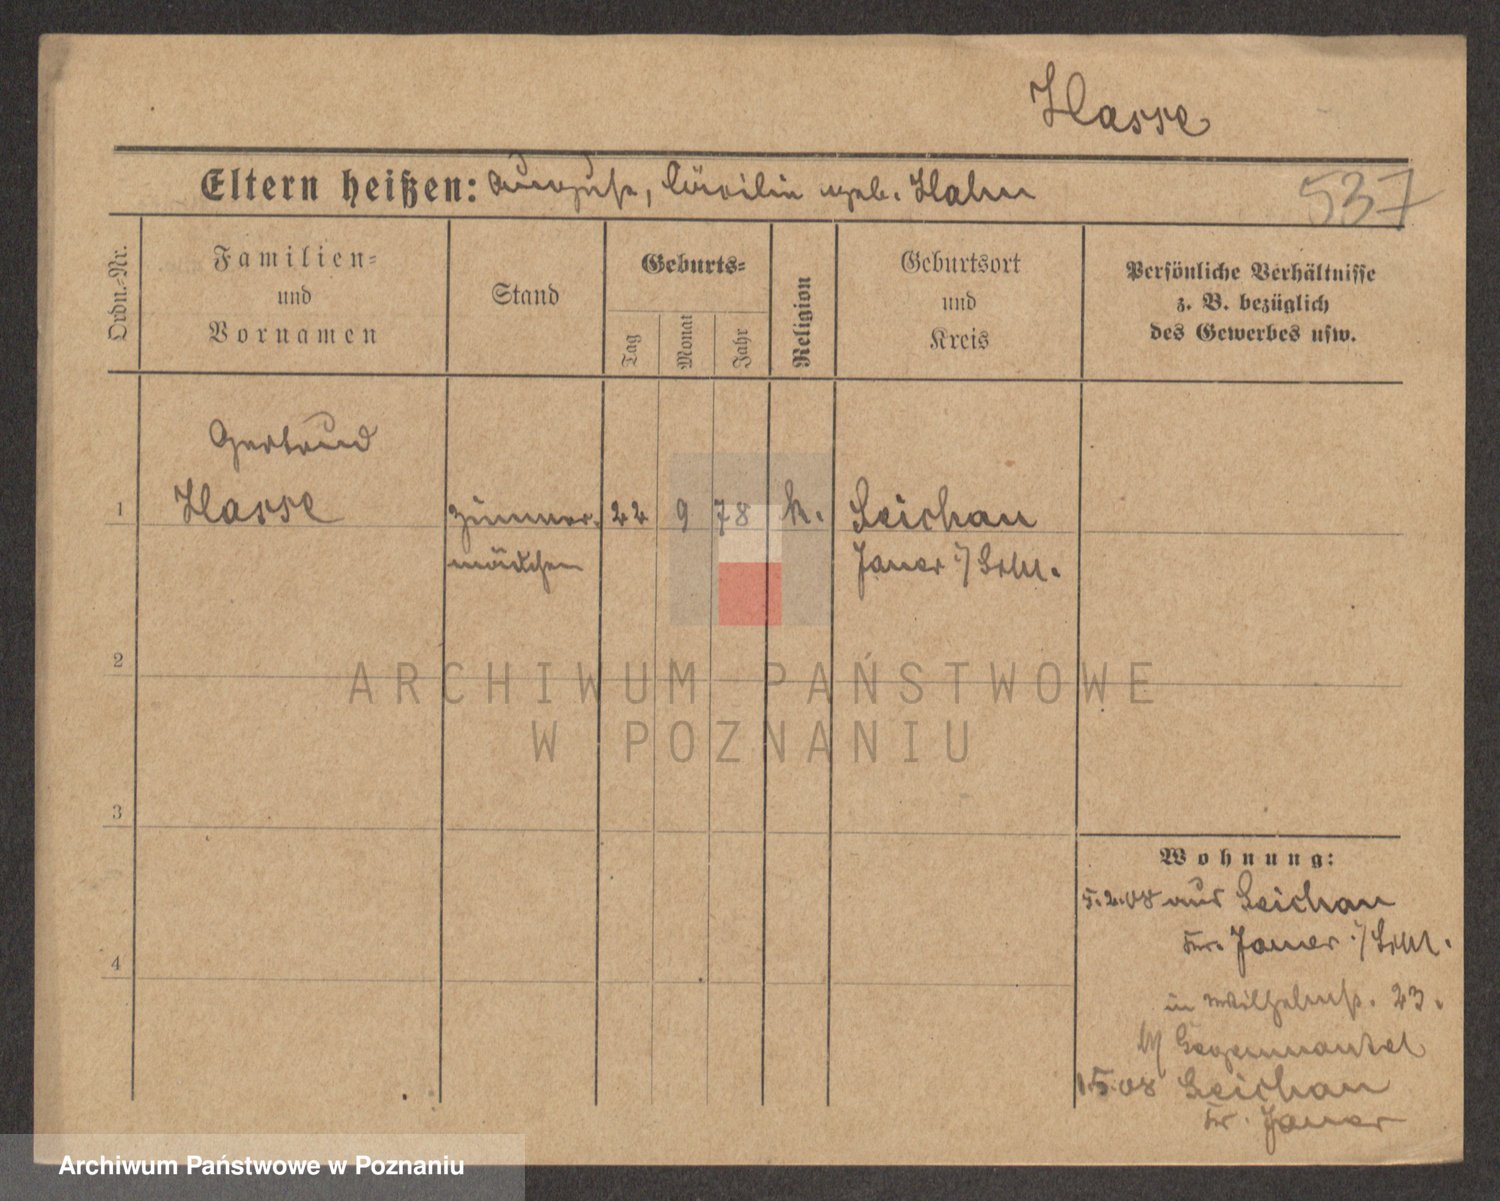 Hasse
Eltern heißen: August, Cäcilie geb. Hahn
537
Ordn.-Nr.
Familien-
und
Vornamen
Stand
Geburts-
Tag
Monat
Jahr
Religion
Geburtsort
und
Kreis
Persönliche Verhältnisse
z. B. bezüglich
des Gewerbes usw.
Gertrud
1 Hasse Zimmer- 22 9 78 k. Seichau
mädchen Jauer i/Schl.
2
ARCHIWUM PAŃSTWOWE
W POZNANIU
3
Wohnung:
5.2.08 aus Seichau
Kr. Jauer i/Schl.
4
in Wilhelmstr. 23.
b/
1.5.08 Seichau
Kr. Jauer
Archiwum Państwowe w Poznaniu